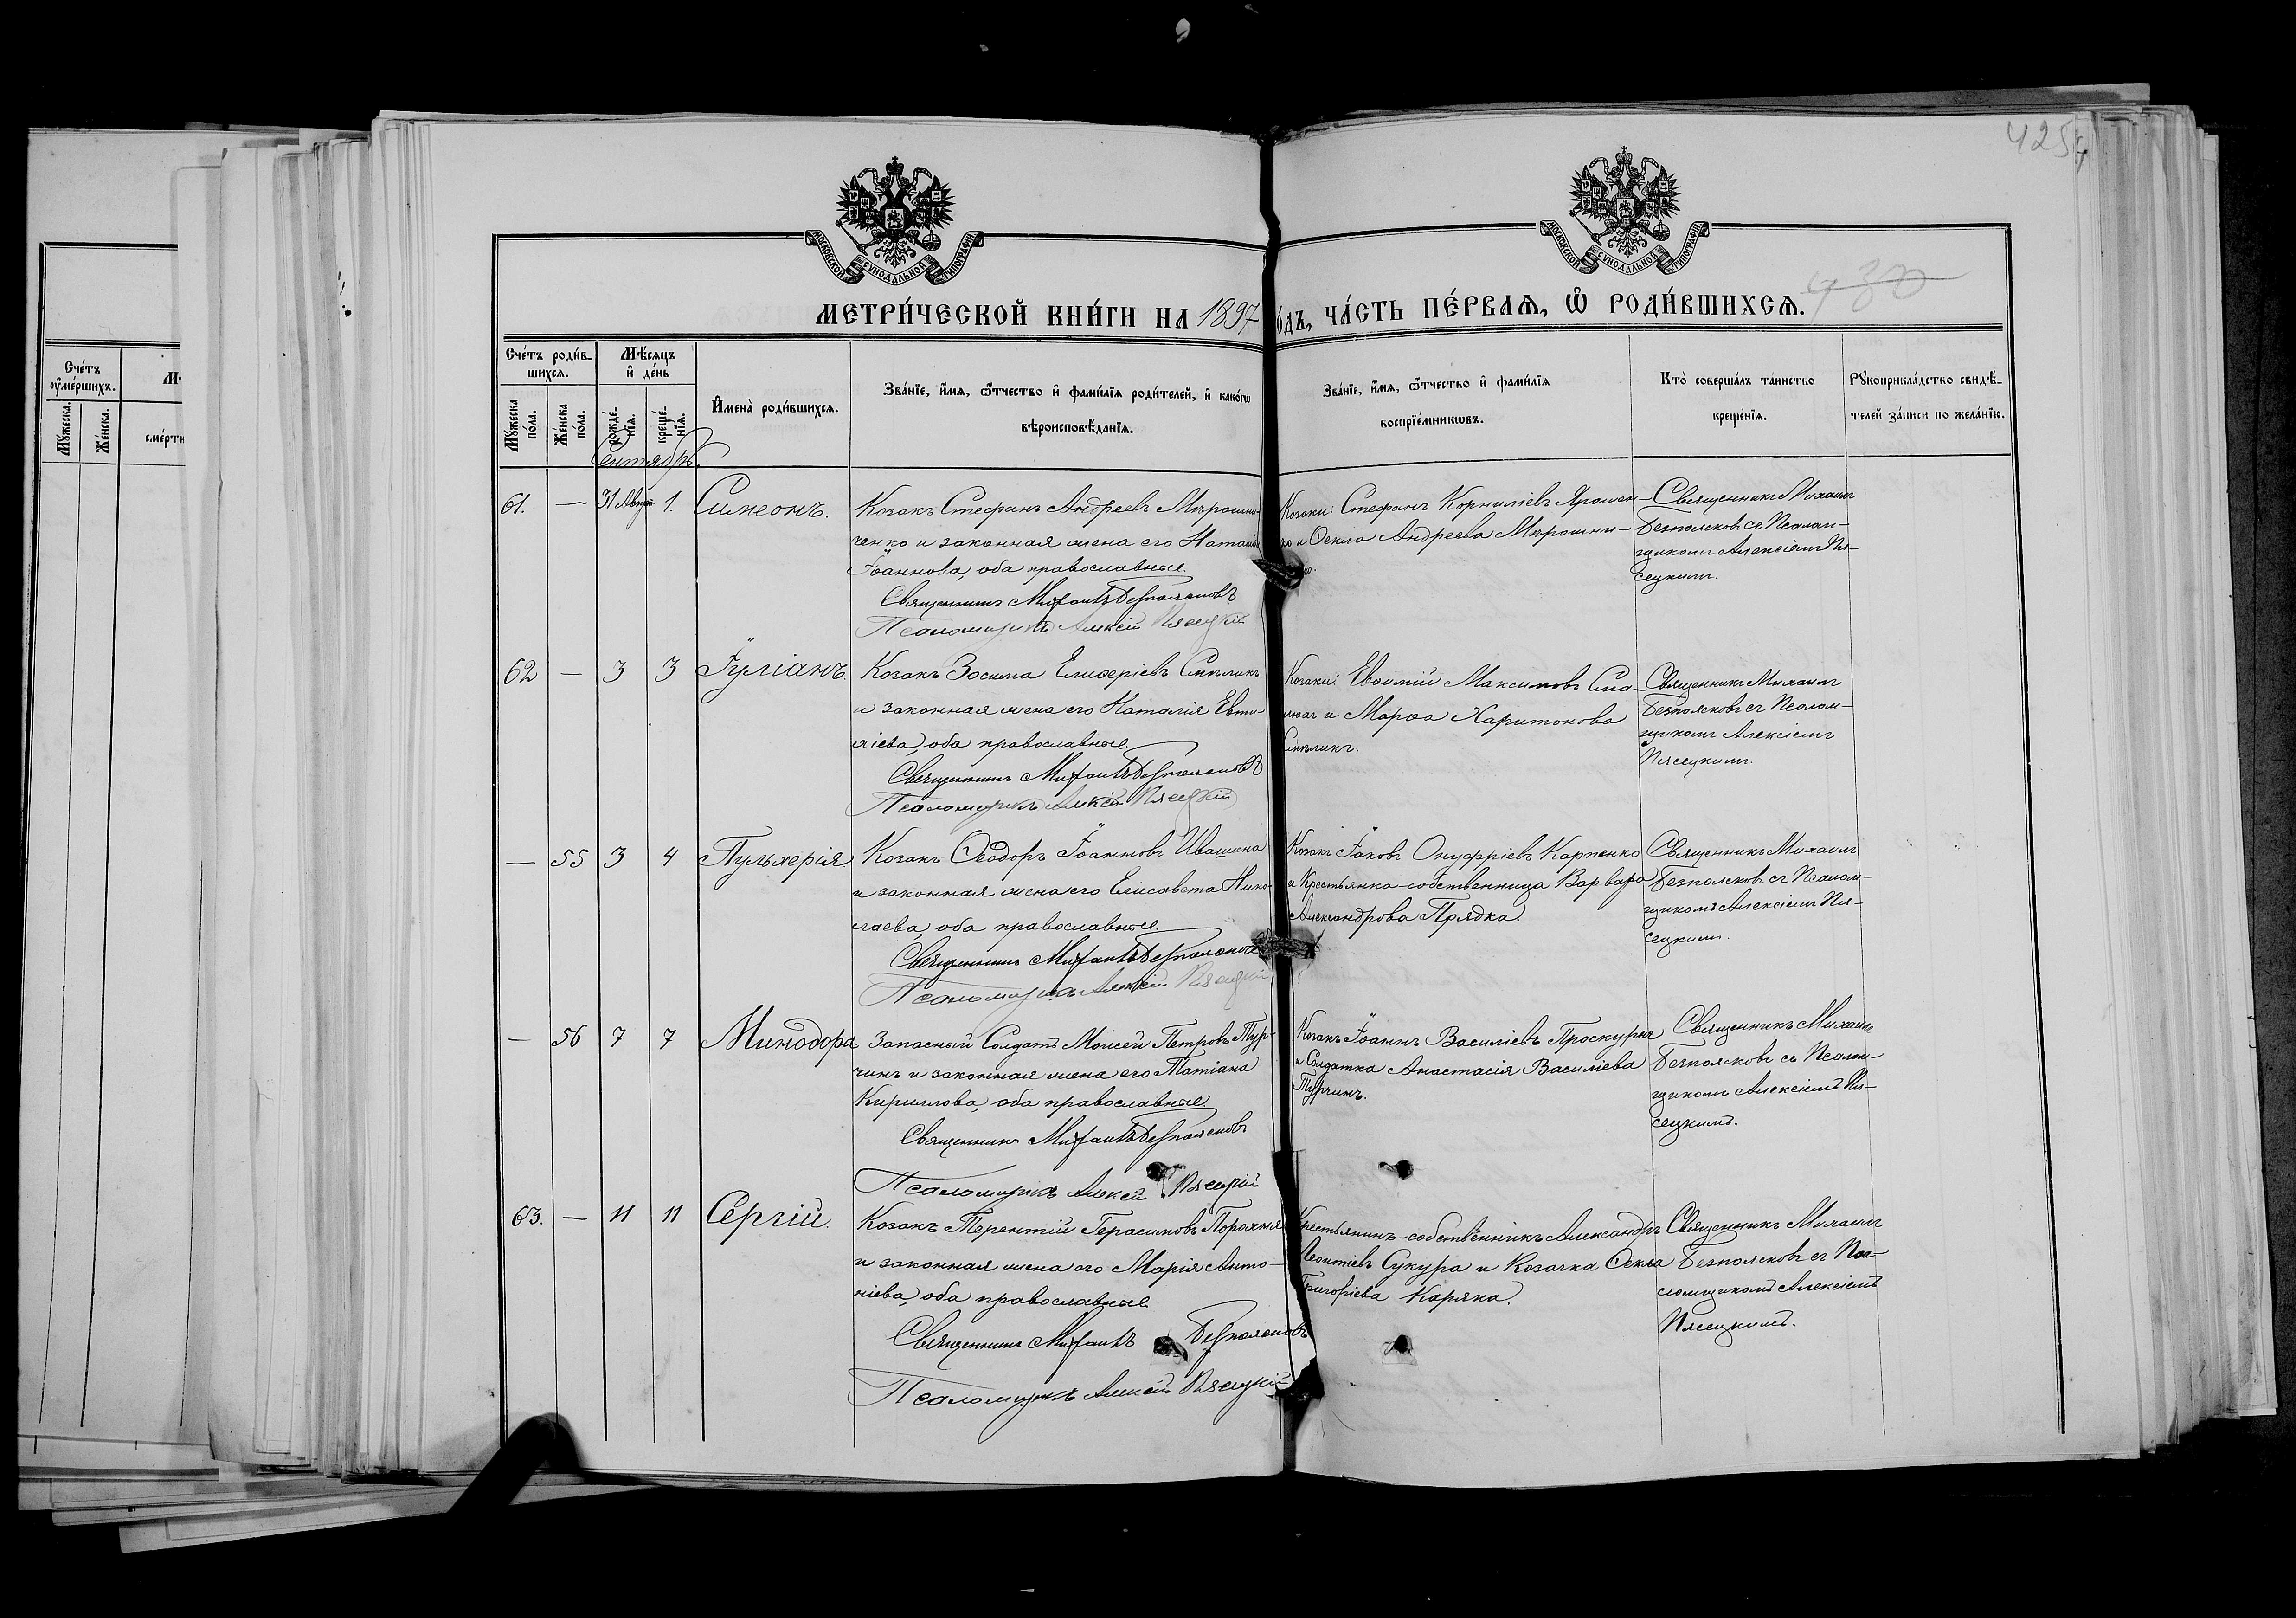 425
МОСКОВСКОЙ СѴНОДАЛЬНОЙ ТИПОГРАФІИ
МОСКОВСКОЙ СѴНОДАЛЬНОЙ ТИПОГРАФІИ
430
МЕТРИ́ЧЕСКОЙ КНИ́ГИ НА 1897 О́ДЪ, ЧА́СТЬ ПЕ́РВАѦ, Ѡ҆ РОДИ́ВШИХСѦ.
Сче́тъ оу҆ме́ршихъ.
Мꙋ́жеска.
Же́нска.
сме́рти
Сче́тъ роди́в-
шихсѧ.
Мꙋ́жеска по́ла.
Же́нска по́ла.
Мѣ́сѧцъ
и҆ де́нь
рожде́-
нїѧ.
креще́-
нїѧ.
И҆мена̀ роди́вшихсѧ.
Зва́нїе, и҆́мѧ, ѻ҆́тчество и҆ фами́лїѧ роди́телей, и҆ како́гѡ
вѣроисповѣ́данїѧ.
Зва́нїе, и҆́мѧ, ѻ҆́тчество и҆ фами́лїѧ
воспрїе́мникѡвъ.
Кто̀ соверша́лъ та́инство
креще́нїѧ.
Рꙋкоприкла́дство свидѣ́-
телей за́писи по жела́нїю.
Сентябрь
61. — 31 Авгу 1. Симеонъ.
Козакъ Стефанъ Андреевъ Мирошни-
ченко и законная жена его Наталія
Іоаннова, оба православные.
Священникъ Михаилъ Безпоясковъ
Псаломщикъ Алексій Пясецкій
Козаки: Стефанъ Корниліевъ Ярошен-
ко и Ѳекла Андреева Мирошни-
Священникъ Михаилъ
Безпоясковъ съ Псалом-
щикомъ Алексіемъ Пя-
сецкимъ.
62 — 3 3 Іуліанъ.
Козакъ Зосима Елиѳеріевъ Смѣликъ
и законная жена его Наталія Евти-
хіева, оба православные.
Священникъ Михаилъ Безпоясковъ
Псаломщикъ Алексій Пясецкій
Козаки: Евѳимій Максимовъ
и Марѳа Харитонова
Смѣликъ.
Священникъ Михаилъ
Безпоясковъ съ Псалом-
щикомъ Алексіемъ
Пясецкимъ.
— 55 3 4 Пульхерія
Козакъ Ѳеодоръ Іоанновъ Ивашина
и законная жена его Елисавета Нико-
лаева, оба православные.
Священникъ Михаилъ Безпоясковъ
Псаломщикъ Алексій Пясецкій
Козакъ Іаковъ Онуфріевъ Карпенко
и Крестьянка-собственница Варвара
Александрова Прядка.
Священникъ Михаилъ
Безпоясковъ съ Псалом-
щикомъ Алексіемъ Пя-
сецкимъ.
— 56 7 7 Минодора
Запасный Солдатъ Моисей Петровъ Тур-
чинъ и законная жена его Татіана
Кириллова, оба православные.
Священникъ Михаилъ Безпоясковъ
Псаломщикъ Алексій Пясецкій
Козакъ Іоаннъ Василіевъ Проскурня
и Солдатка Анастасія Василіева
Турчинъ.
Священникъ Михаилъ
Безпоясковъ съ Псалом-
щикомъ Алексіемъ Пя-
сецкимъ.
63. — 11 11 Сергій.
Козакъ Терентій Герасимовъ Порохня
и законная жена его Марія Анто-
ніева, оба православные
Священникъ Михаилъ Безпоясковъ
Псаломщикъ Алексій Пясецкій
Крестьянинъ-собственникъ Александръ
Леонтіевъ Сукура и Козачка Ѳекла
Григоріева Каряка.
Священникъ Михаилъ
Безпоясковъ съ Пса-
ломщикомъ Алексіемъ
Пясецкимъ.